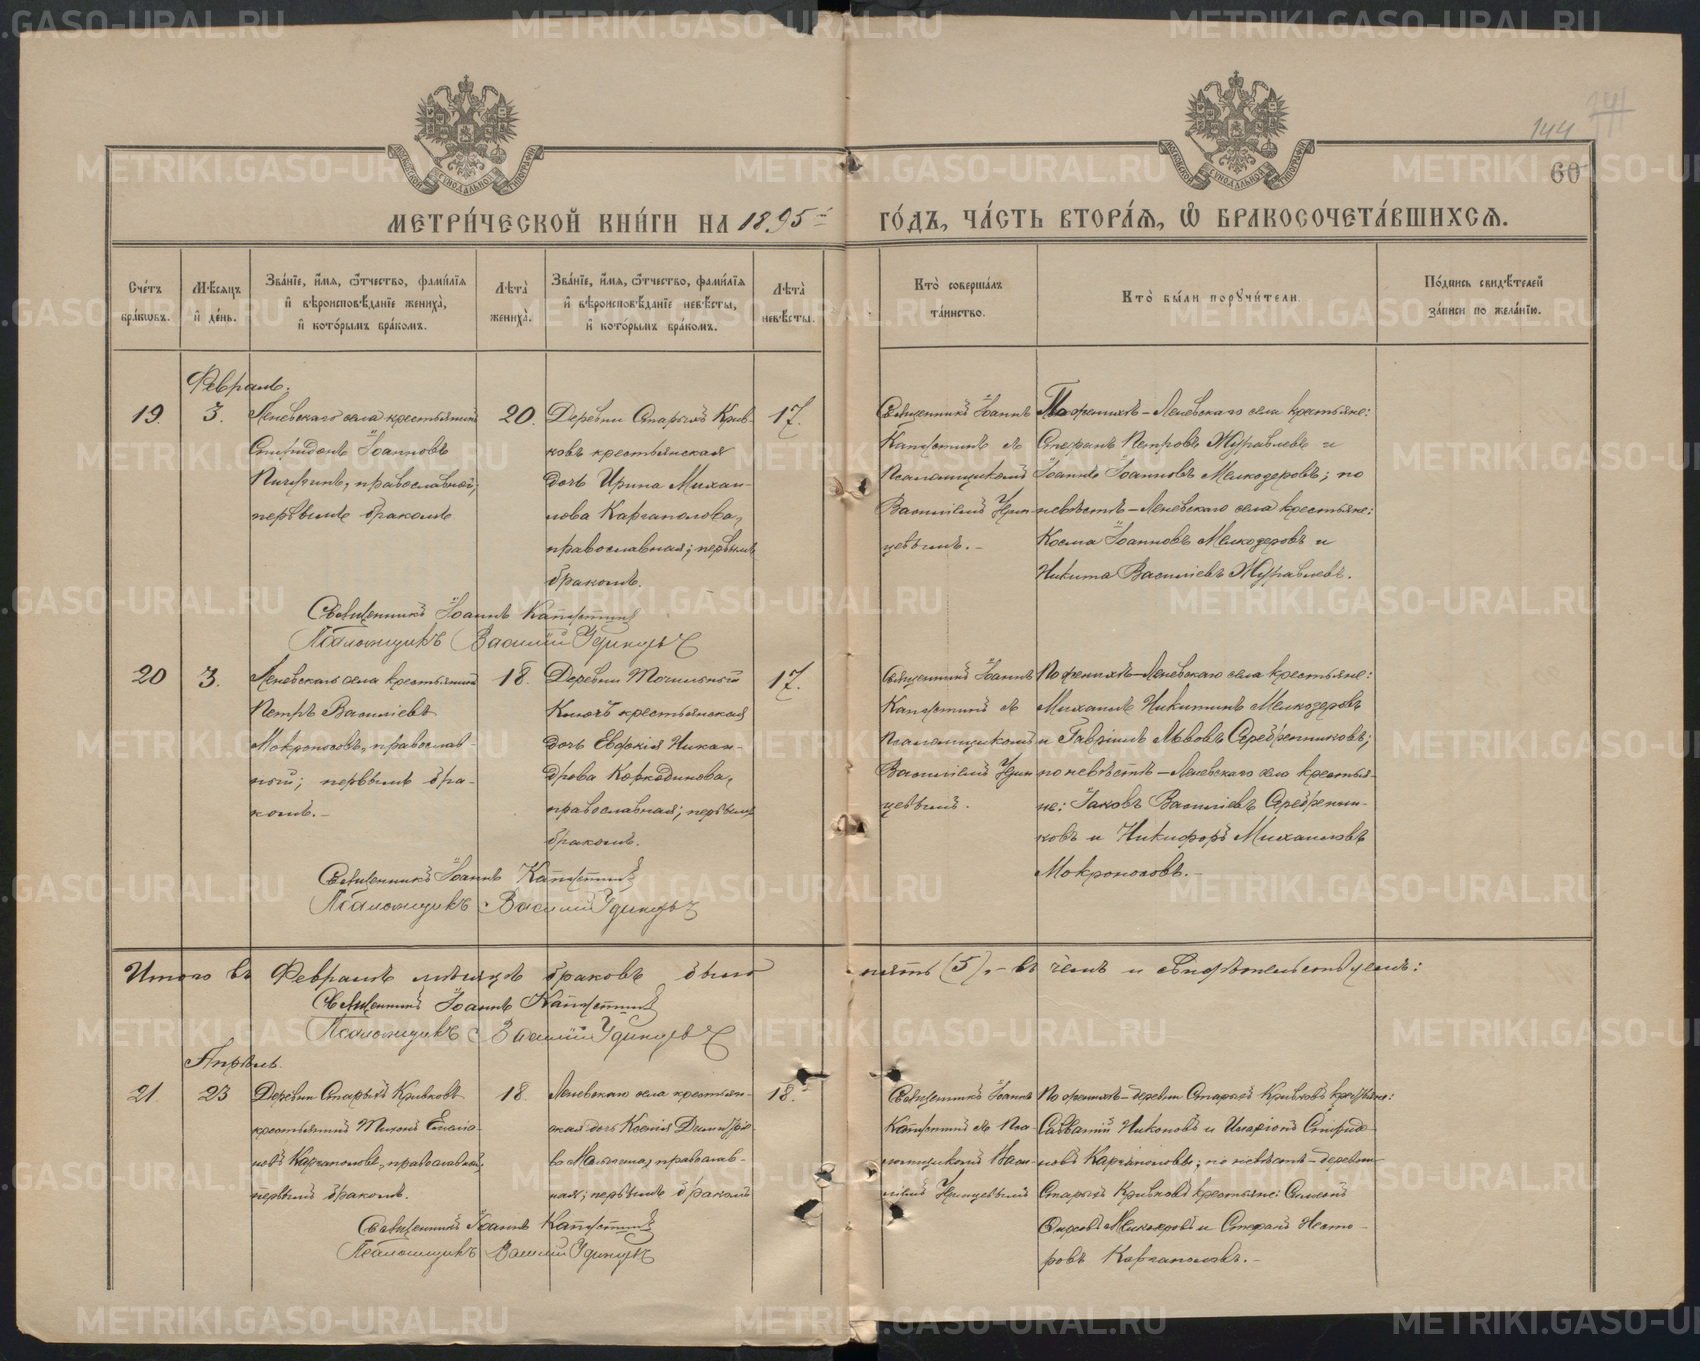 144
60
МЕТРИ́ЧЕСКОЙ КНИ́ГИ НА 1895й ГО́ДЪ, ЧА́СТЬ ВТОРА́Я, Ѡ҆ БРАКОСОЧЕТА́ВШИХСЯ.
Сче́тъ бра́кѡвъ.
Мѣ́сяцъ и҆ де́нь.
Зва́нїе, и҆́мя, ѻ҆́тчество, фами́лїя
и҆ вѣроисповѣ́данїе жениха̀,
и҆ кото́рымъ бра́комъ.
Лѣ́та жениха̀.
Зва́нїе, и҆́мя, ѻ҆́тчество, фами́лїя
и҆ вѣроисповѣ́данїе невѣ́сты,
и҆ кото́рымъ бра́комъ.
Лѣ́та невѣ́сты.
Кто̀ соверша́лъ
та́инство.
Кто̀ бы́ли порꙋчи́тели.
По́дпись свидѣ́телей
за́писи по жела́нїю.
Февраль.
19.
3.
Леневскаго села крестьянинъ
Спиридонъ Іоанновъ
православный;
первымъ бракомъ
20.
Деревни Старыхъ Крив-
ковъ крестьянская
дочь Ирина Михаи-
лова Каргаполова,
православная; первымъ
бракомъ.
17.
Священникъ Іоаннъ
съ
Псаломщикомъ
Василіемъ Удин-
цевымъ.-
По женихѣ - Леневскаго села крестьяне:
Петровъ Журавлевъ и
Іоаннъ Іоанновъ Мелкозеровъ; по
невѣстѣ - Леневскаго села крестьяне:
Косма Іоанновъ Мелкозеровъ и
Никита Васильевъ Журавлевъ.
Священникъ Іоаннъ
Псаломщикъ Василій Удинцевъ
20
3.
Леневскаго села крестьянинъ
Петръ Васильевъ
Мокроносовъ, православ-
ный; первымъ бра-
комъ.-
18.
Деревни Точильный
Ключъ крестьянская
дочь Евдокія Никан-
дрова Коркодинова,
православная; первымъ
бракомъ.
17.
Священникъ Іоаннъ
съ
Псаломщикомъ
Василіемъ Удин-
цевымъ.
По женихѣ - Леневскаго села крестьяне:
Михаилъ Никитинъ Мелкозеровъ
и Гавріилъ Львовъ Серебренниковъ;
по невѣстѣ - Леневскаго села крестья-
не: Іаковъ Васильевъ Серебренни-
ковъ и Никифоръ Михаиловъ
Мокроносовъ.-
Священникъ Іоаннъ
Псаломщикъ Василій Удинцевъ
Итого въ Февралѣ мѣсяцѣ браковъ было пять (5), - въ чемъ и свидѣтельствуемъ:
Священникъ Іоаннъ
Псаломщикъ Василій Удинцевъ
Апрѣль.
21.
23
Деревни Старыхъ Кривковъ
крестьянинъ Тихонъ
Каргаполовъ, православный;
первымъ бракомъ.
18.
Леневскаго села крестьян-
ская дочь Ксенія Димитріе-
ва православ-
ная; первымъ бракомъ
18.
Священникъ Іоаннъ
съ Пса-
ломщикомъ Васи-
ліемъ Удинцевымъ
По женихѣ - деревни Старыхъ Кривковъ крестьяне:
Савватій Никоновъ и Иларіонъ Спиридо-
новъ Каргаполовы; по невѣстѣ - деревни
Старыхъ Кривковъ крестьяне: Симеонъ
Мелкозеровъ и Стефанъ Несто-
ровъ Каргаполовъ.-
Священникъ Іоаннъ
Псаломщикъ Василій Удинцевъ
METRIKI.GASO-URAL.RU